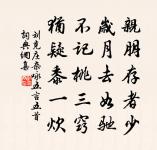 親朋存者少
歲月去如馳
不記桃三竊
猶疑黍一炊
劉克莊雜詠五言五首
詞典網集